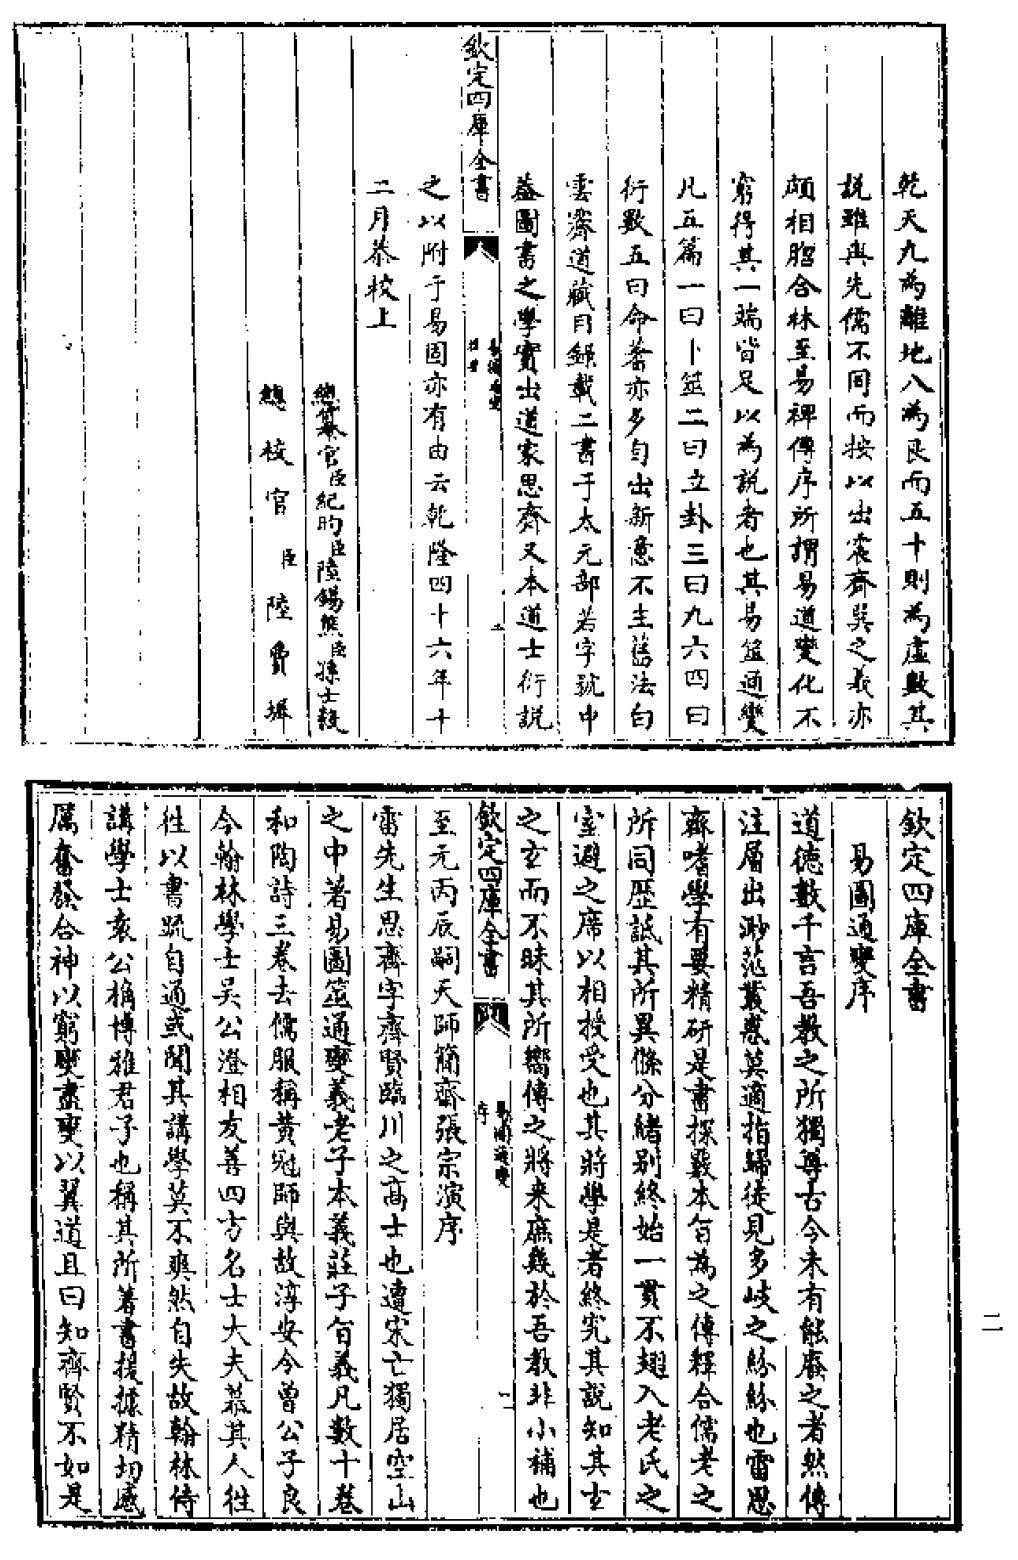 乾天九為離地八為艮而五十則為虛數其
説雖與先儒不同而按以出震齊巽之義亦
頗相脗合林至易禆傳序所謂易道變化不
窮得其一端皆足以為説者也其易筮通變
凡五篇一曰卜筮二曰立卦三曰九六四曰
衍數五曰命蓍亦多自出新意不主舊法白
雲齋道藏目錄載二書于太元部若字號中
蓋圖書之學實出道家思齊又本道士衍説
欽定四庫全書
易圖通變
提要
二
之以附于易固亦有由云乾隆四十六年十
二月恭校上
總纂官臣紀昀臣陸錫熊臣孫士毅
總校官臣陸費墀
欽定四庫全書
易圖通變序
道德數千言吾教之所獨尊古今未有能廢之者然傳
注層出渺茫叢惑莫適指歸徒見多岐之紛紛也雷思
齊嗜學有要精研是書探覈本旨為之傳釋合儒老之
所同歷詆其所異條分緒别終始一貫不翅入老氏之
室避之席以相授受也其將學是者終究其説知其玄
之玄而不昧其所嚮傳之將来庶幾於吾教非小補也
欽定四庫全書
易圖通變
序
一
至元丙辰嗣天師簡齋張宗演序
雷先生思齊字齊賢臨川之髙士也遭宋亡獨居空山
之中著易圖筮通變義老子本義莊子旨義凡數十卷
和陶詩三卷去儒服稱黃冠師與故淳安令曽公子良
今翰林學士吳公澄相友善四方名士大夫慕其人往
往以書疏自通或聞其講學莫不爽然自失故翰林侍
講學士袁公桷博雅君子也稱其所著書援據精切感
厲奮發合神以窮變盡變以翼道且曰知齊賢不如是
二